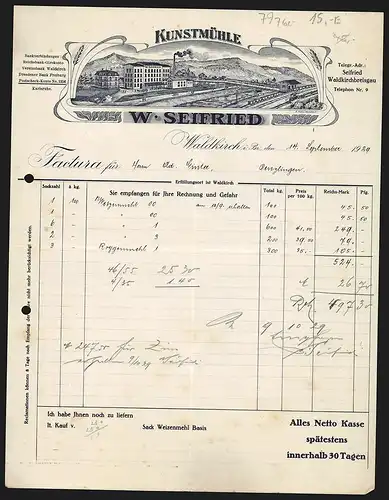 7976e 15,-E
KUNSTMÜHLE
Sackverbindungen
Reichsbank-Girokonto
Vereinsbank Waldkirch
Dresdener Bank Freiburg
Postscheck-Konto No.
Karlsruhe.
Telegr.-Adr.:
Seifried
Waldkirchbreisgau
Telephon Nr. 9
W. SEIFRIED
Waldkirch i. Br. den 14. September 1929
Factura für Herrn
Denzlingen
Erfüllungsort ist Waldkirch
Sackzahl à kg. Sie empfangen für Ihre Rechnung und Gefahr Total kg. Preis per 100 kg. Reichs-Mark Pfg.
1 100 Weizenmehl 00 am erhalten 100 45. 50
1 00 100 45. 50
6 1 600 41,50 249. -
2 2 200 39,50 79. -
3 Roggenmehl 1 300 35. - 105. -
524. -
46/55 25 30
4/35 1 40
26 70
497 30
9 10 29
247,50 für
Reclamationen können 8 Tage nach Empfang der Ware nicht mehr berücksichtigt werden.
Ich habe Ihnen noch zu liefern
lt. Kauf v. Sack Weizenmehl Basis
Alles Netto Kasse
spätestens
innerhalb 30 Tagen